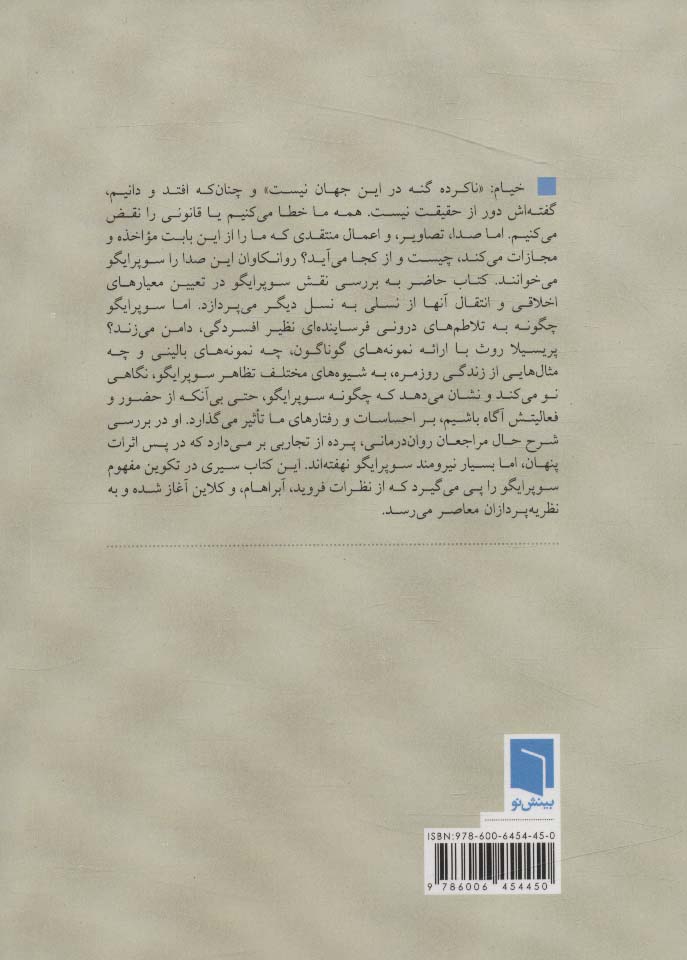 خیام: «ناکرده گنه در این جهان نیست» و چنان‌که افتد و دانیم،
گفته‌اش دور از حقیقت نیست. همه ما خطا می‌کنیم یا قانونی را نقض
می‌کنیم. اما صدا، تصاویر، و اعمال منتقدی که ما را از این بابت مؤاخذه و
مجازات می‌کند، چیست و از کجا می‌آید؟ روانکاوان این صدا را سوپرایگو
می‌خوانند. کتاب حاضر به بررسی نقش سوپرایگو در تعیین معیارهای
اخلاقی و انتقال آنها از نسلی به نسل دیگر می‌پردازد. اما سوپرایگو
چگونه به تلاطم‌های درونی فرساینده‌ای نظیر افسردگی، دامن می‌زند؟
پریسیلا روث با ارائه نمونه‌های گوناگون، چه نمونه‌های بالینی و چه
مثال‌هایی از زندگی روزمره، به شیوه‌های مختلف تظاهر سوپرایگو، نگاهی
نو می‌کند و نشان می‌دهد که چگونه سوپرایگو، حتی بی‌آنکه از حضور و
فعالیتش آگاه باشیم، بر احساسات و رفتارهای ما تأثیر می‌گذارد. او در بررسی
شرح حال مراجعان روان‌درمانی، پرده از تجاربی بر می‌دارد که در پس اثرات
پنهان، اما بسیار نیرومند سوپرایگو نهفته‌اند. این کتاب سیری در تکوین مفهوم
سوپرایگو را پی می‌گیرد که از نظرات فروید، آبراهام، و کلاین آغاز شده و به
نظریه‌پردازان معاصر می‌رسد.
بینش نو
ISBN: 978-600-6454-45-0
9 786006 454450